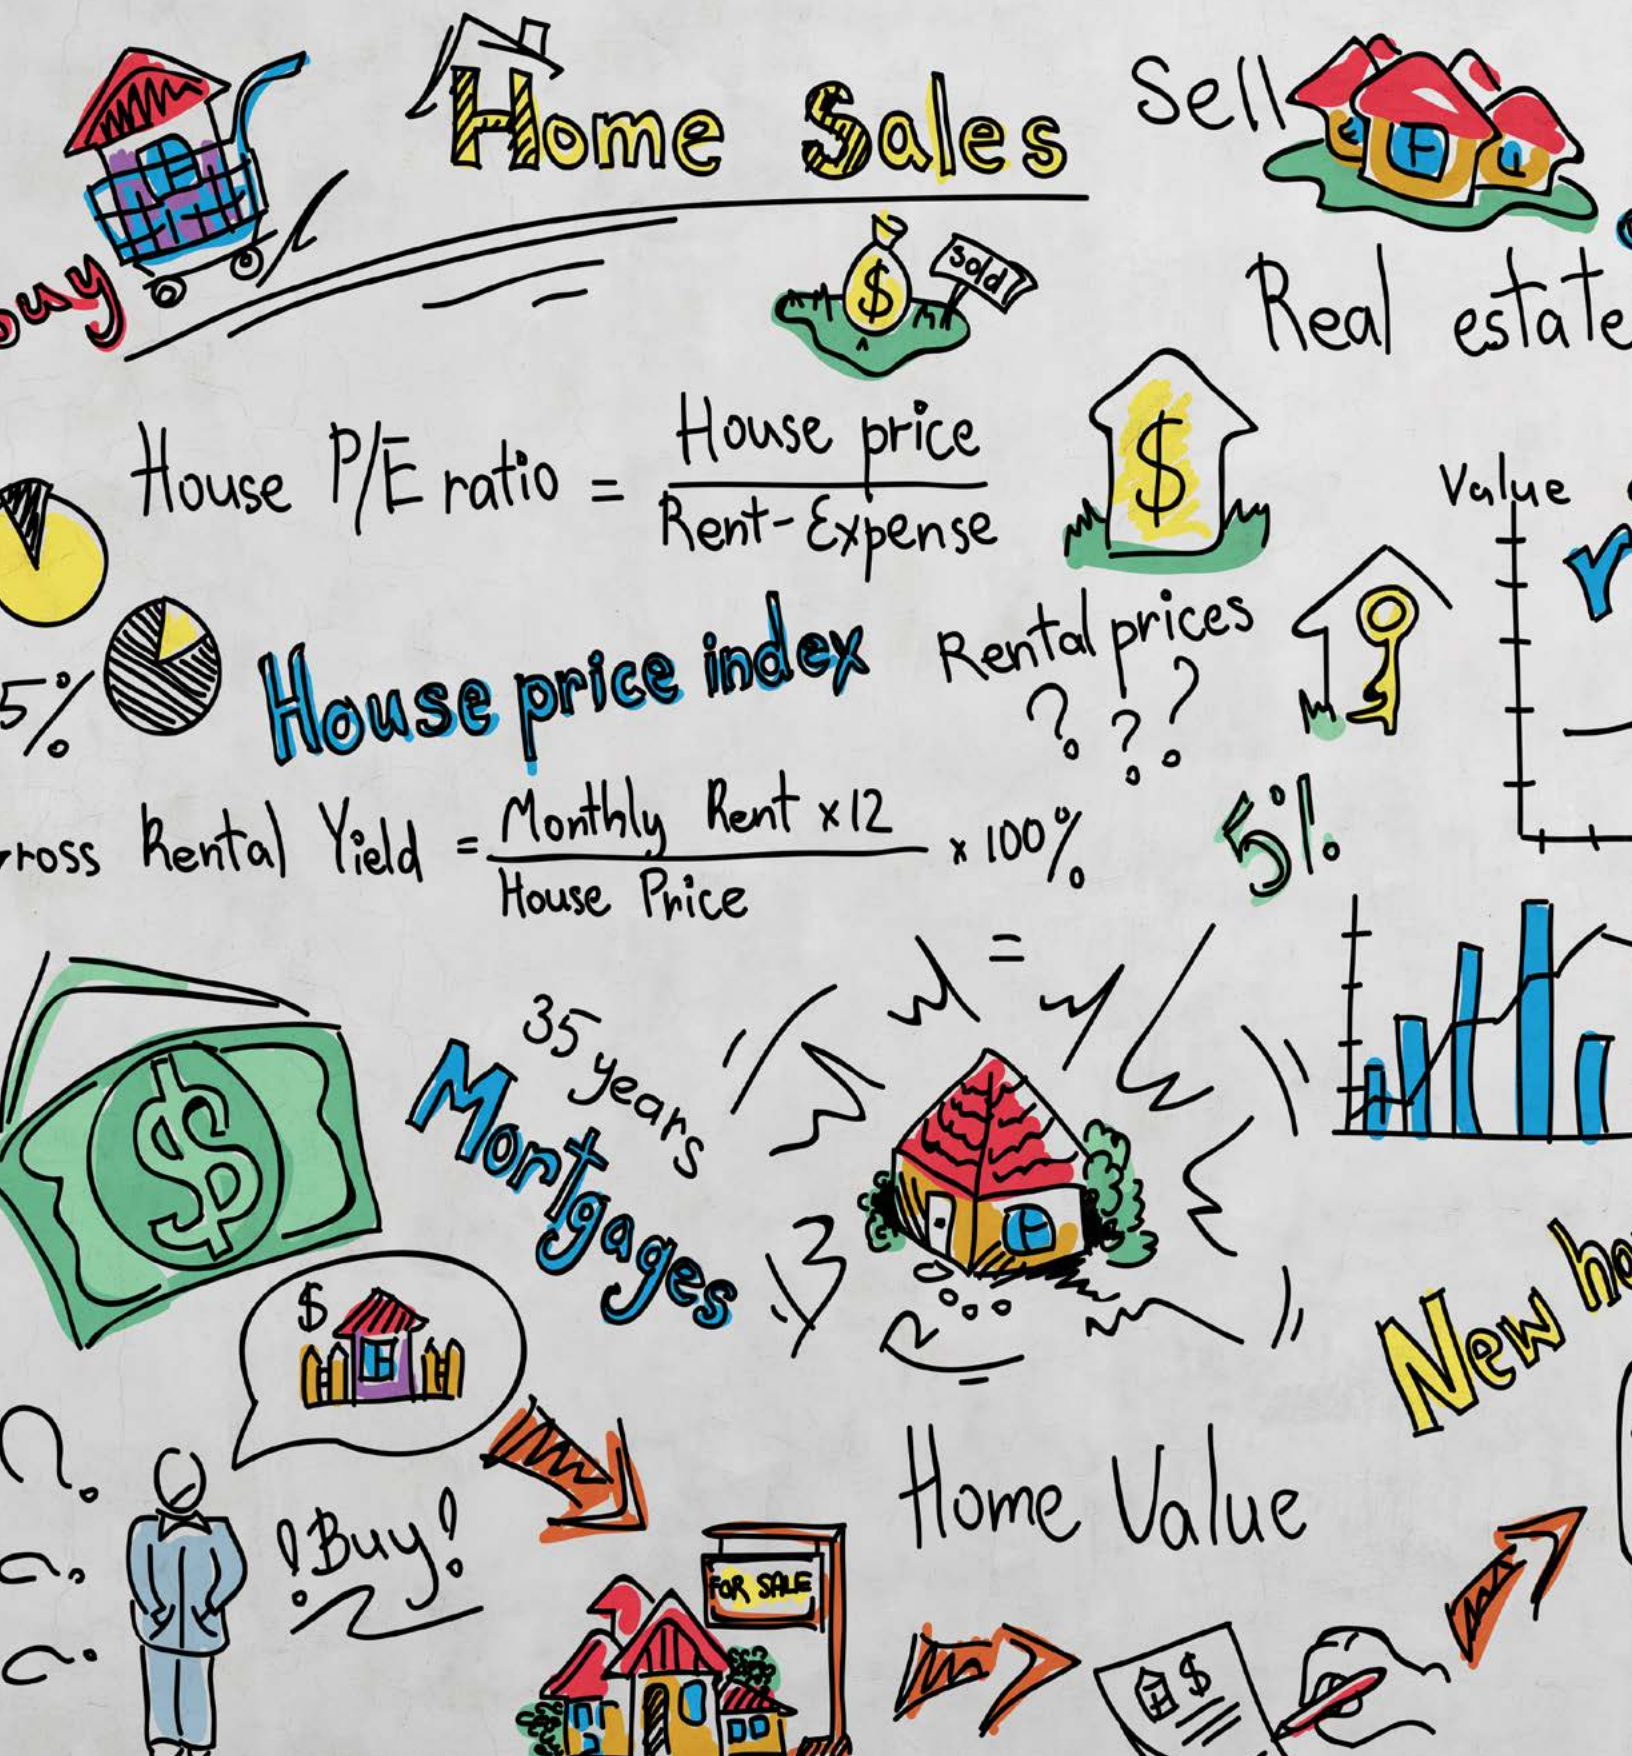 Home Sales
Sell
buy
$
Sold
Real estate
House P/E ratio = House price
Rent-Expense
$
Value
5%
House price index
Rental prices
? ? ?
Gross Rental Yield = Monthly Rent x12 x 100%
House Price
5%
=
35 years
Mortgages
$
$
New
Home Value
! Buy !
FOR SALE
$